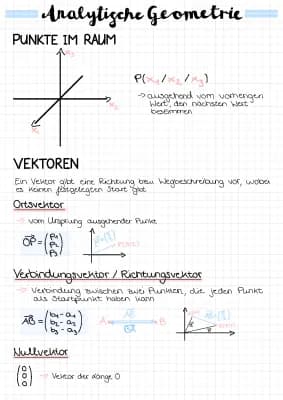 Analytische Geometrie
PUNKTE IM RAUM
x₃
P(x₁/x₂/x₃)
→ ausgehend vom vorherigen
Wert, den nächsten Wert
bestimmen
x₂
x₁
VEKTOREN
Ein Vektor gibt eine Richtung bzw. Wegbeschreibung vor, wobei
es keinen festgelegten Start gibt
Ortsvektor
→ vom Ursprung ausgehender Punkt
OP = (p₁ p₂ p₃)
Verbindungsvektor / Richtungsvektor
→ Verbindung zwischen zwei Punkten, die jeden Punkt
als Startpunkt haben kann
AB = (b₁ - a₁ b₂ - a₂ b₃ - a₃)
A AB B
BA
Nullvektor
(0 0 0) → Vektor der Länge 0